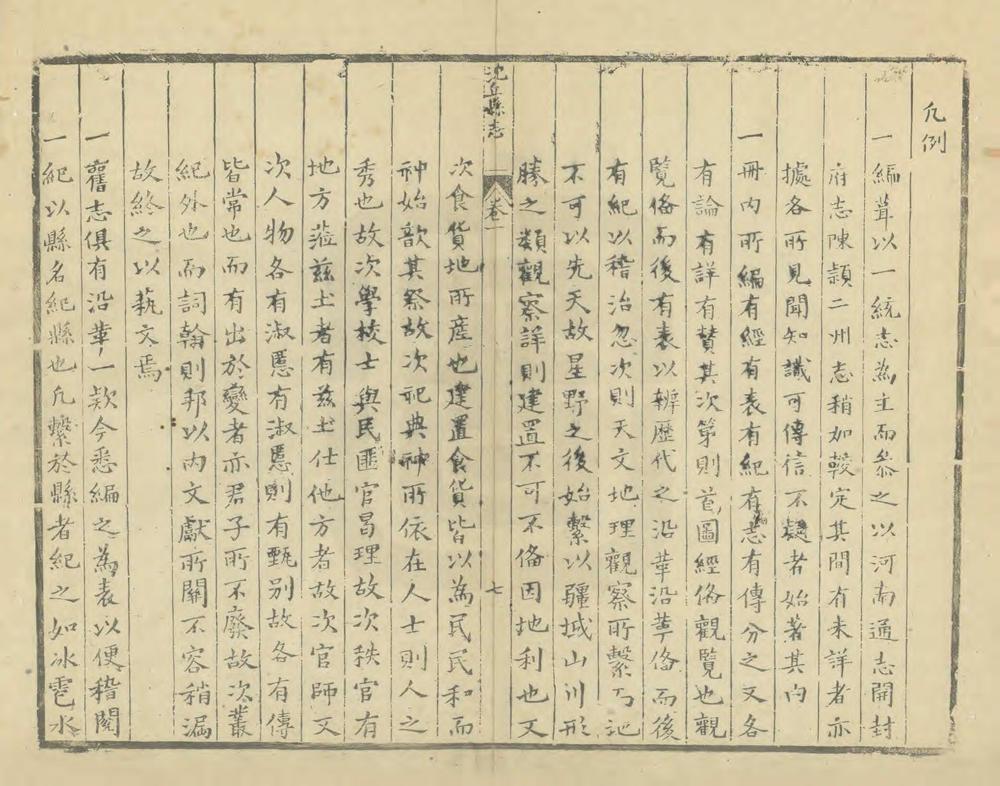 凡例
一編葺以一統志為主而叅之以河南通志開封
府志陳潁二州志稍加較定其間有未詳者亦
據各所見聞知識可傳信不疑者始著其內
一冊內所編有經有表有紀有志有傳分之又各
有論有詳有贊其次第則首圖經俻觀覽也觀
覽俻而後有表以辨歷代之沿革沿革俻而後
有紀以稽治忽次則天文地理觀察所繫乃地
不可以先天故星野之後始繫以疆域山川形
勝之類觀察詳則建置不可不俻因地利也又
沈丘縣志
卷一
七
次食貨地所產也建置食貨皆以為民民和而
神始歆其祭故次祀典神所依在人士則人之
秀也故次學校士與民匪官曷理故次秩官有
地方蒞兹土者有兹土仕他方者故次官師又
次人物各有淑慝有淑慝則有甄别故各有傳
皆常也而有出於變者亦君子所不廢故次叢
紀外也而詞翰則邦以內文獻所關不容稍漏
故終之以藝文焉
一舊志俱有沿革一欵今悉編之為表以便稽閱
一紀以縣名紀縣也凡繫於縣者紀之如冰雹水